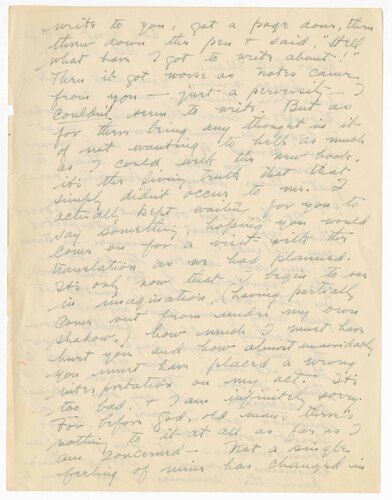 write to you, got a page done, then
threw down the pen & said, "Hell
what have I got to write about!"
Then it got worse as notes came
from you — just a perversely — I
couldn't seem to write. But as
for there being any thought in it
of not wanting to help as much
as I could with the new book,
it's the living truth that that
simply didn't occur to me. I
actually kept waiting for you to
say something, hoping you would
come on for a visit with the
translation as we had planned.
It's only now that I begin to see
in imagination, (having partially
come out from under my own
shadow,) how much I must have
hurt you and how almost unavoidably
you must have placed a wrong
interpretation on my act. It's
too bad, & I am infinitely sorry.
For before God, old man, there's
nothing to it at all as far as I
am concerned — Not a single
feeling of mine has changed in